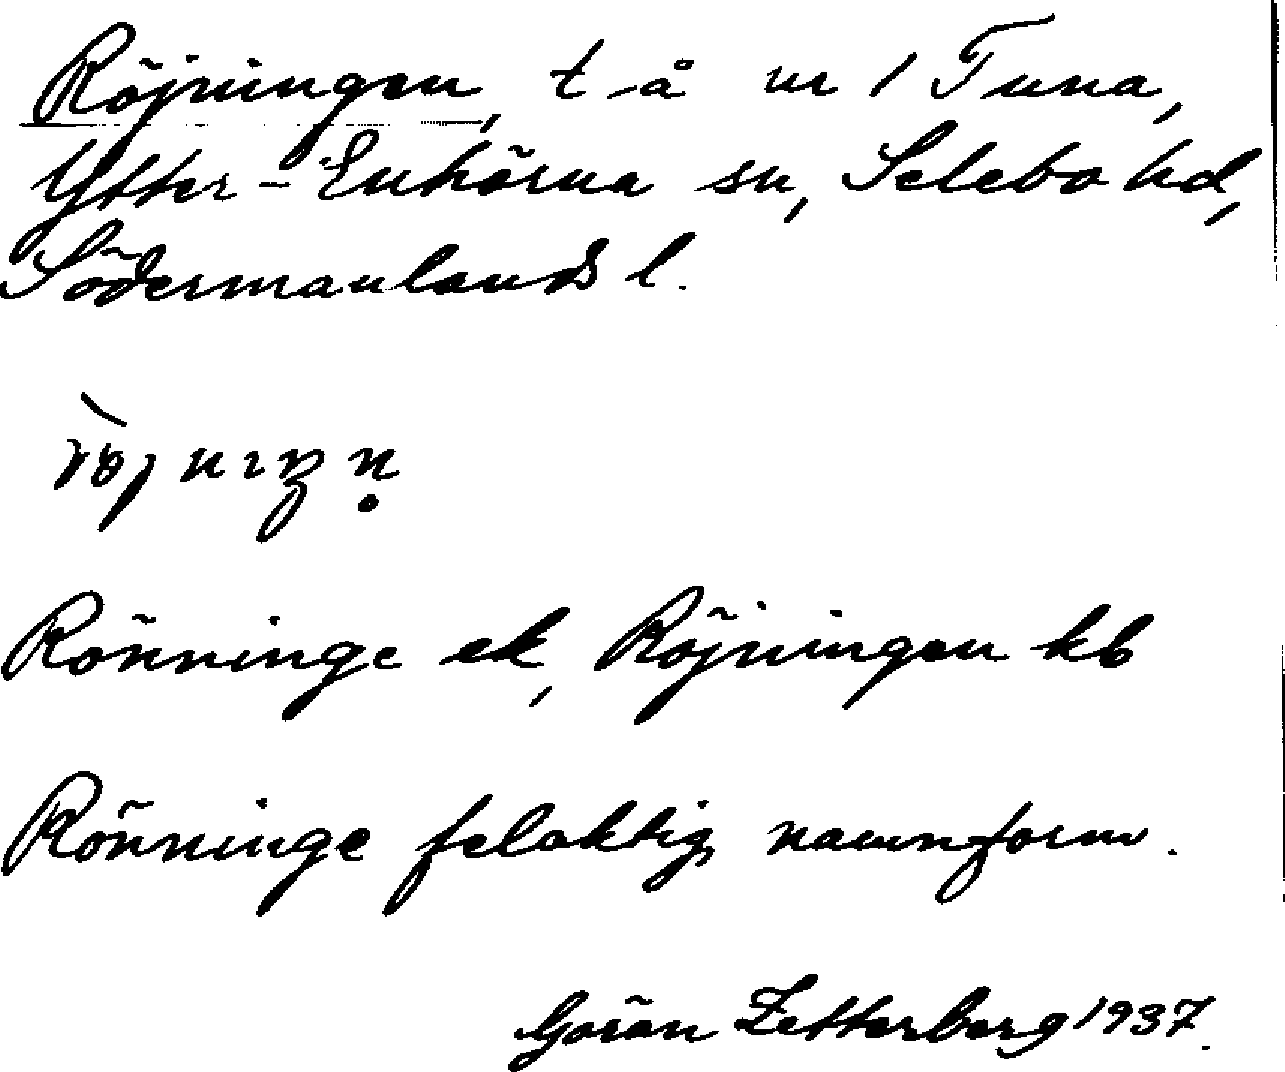 Röjningen, t -å nr 1 Tuna,
Ytter-Enhörna sn, Selebo hd,
Södermanlands l.
Rönninge ek, Röjningen kb
Rönninge felaktig namnform.
Göran Zetterberg 1937.